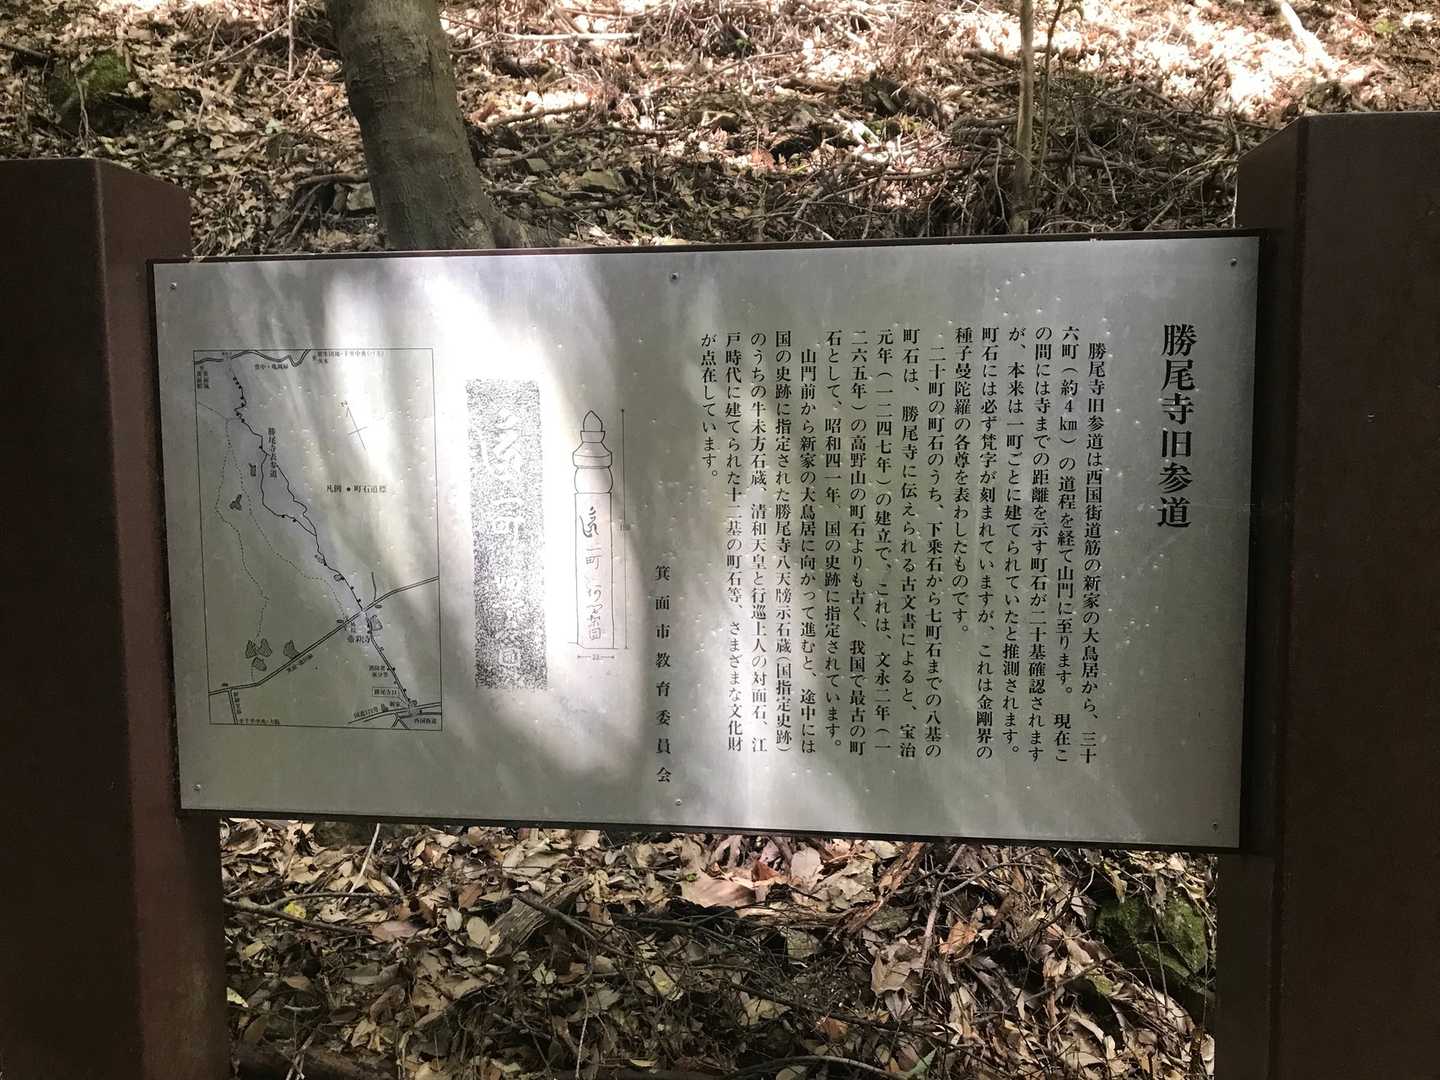 勝尾寺旧参道
勝尾寺旧参道は西国街道筋の新家の大鳥居から、三十
六町（約4km）の道程を経て山門に至ります。現在こ
の間には寺までの距離を示す町石が二十基確認されます
が、本来は一町ごとに建てられていたと推測されます。
町石には必ず梵字が刻まれていますが、これは金剛界の
種子曼陀羅の各尊を表わしたものです。
二十町の町石のうち、下乗石から七町石までの八基の
町石は、勝尾寺に伝えられる古文書によると、宝治
元年（一二四七年）の建立で、これは、文永二年（一
二六五年）の高野山の町石よりも古く、我国で最古の町
石として、昭和四一年、国の史跡に指定されています。
山門前から新家の大鳥居に向かって進むと、途中には
国の史跡に指定された勝尾寺八天牓示石蔵（国指定史跡）
のうちの牛未方石蔵、清和天皇と行巡上人の対面石、江
戸時代に建てられた十二基の町石等、さまざまな文化財
が点在しています。
箕面市教育委員会
勝尾寺表参道
凡例 ● 町石道標
帝釈寺
勝尾寺口
新家
西国街道